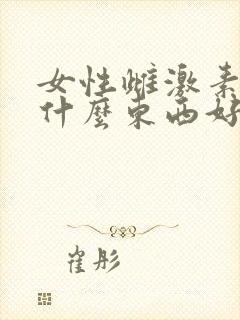 女性雌激素
什麼東西好
崔彤